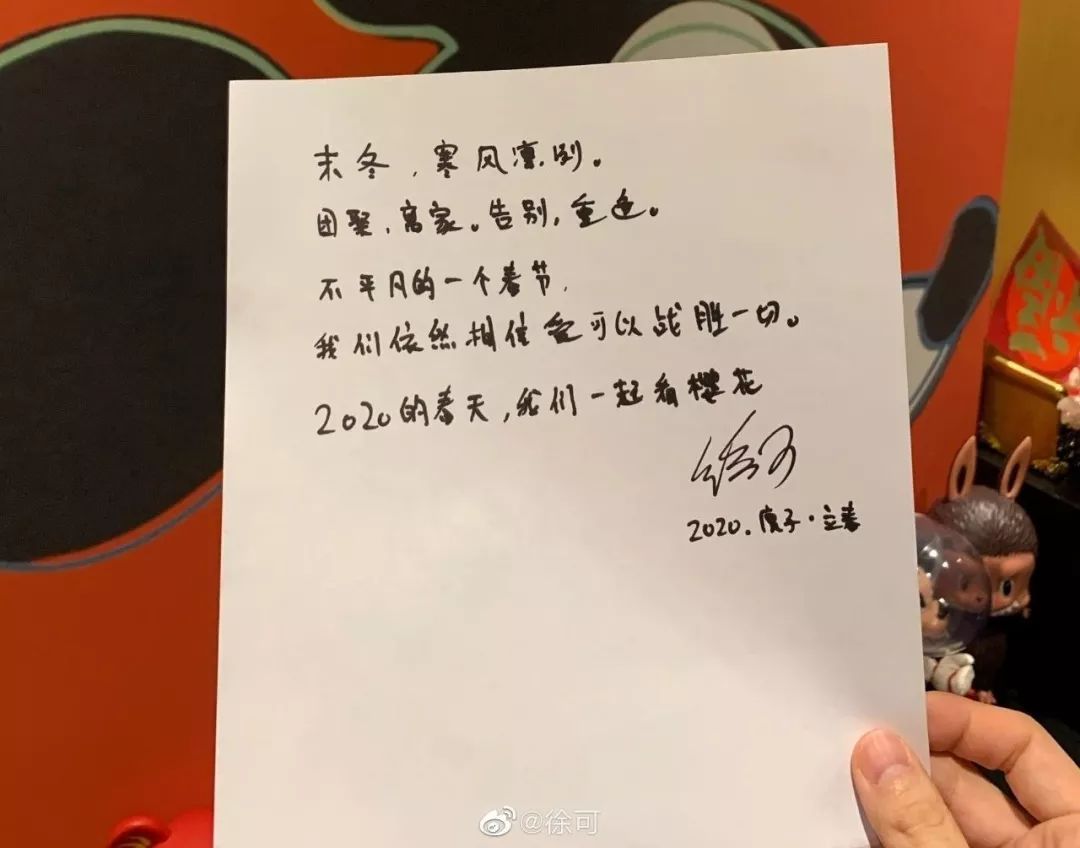 末冬,寒风凛冽。
团聚,离家。告别,重逢。
不平凡的一个春节,
我们依然相信爱可以战胜一切。
2020的春天,我们一起看樱花
徐可
2020.庚子·立春
@徐可